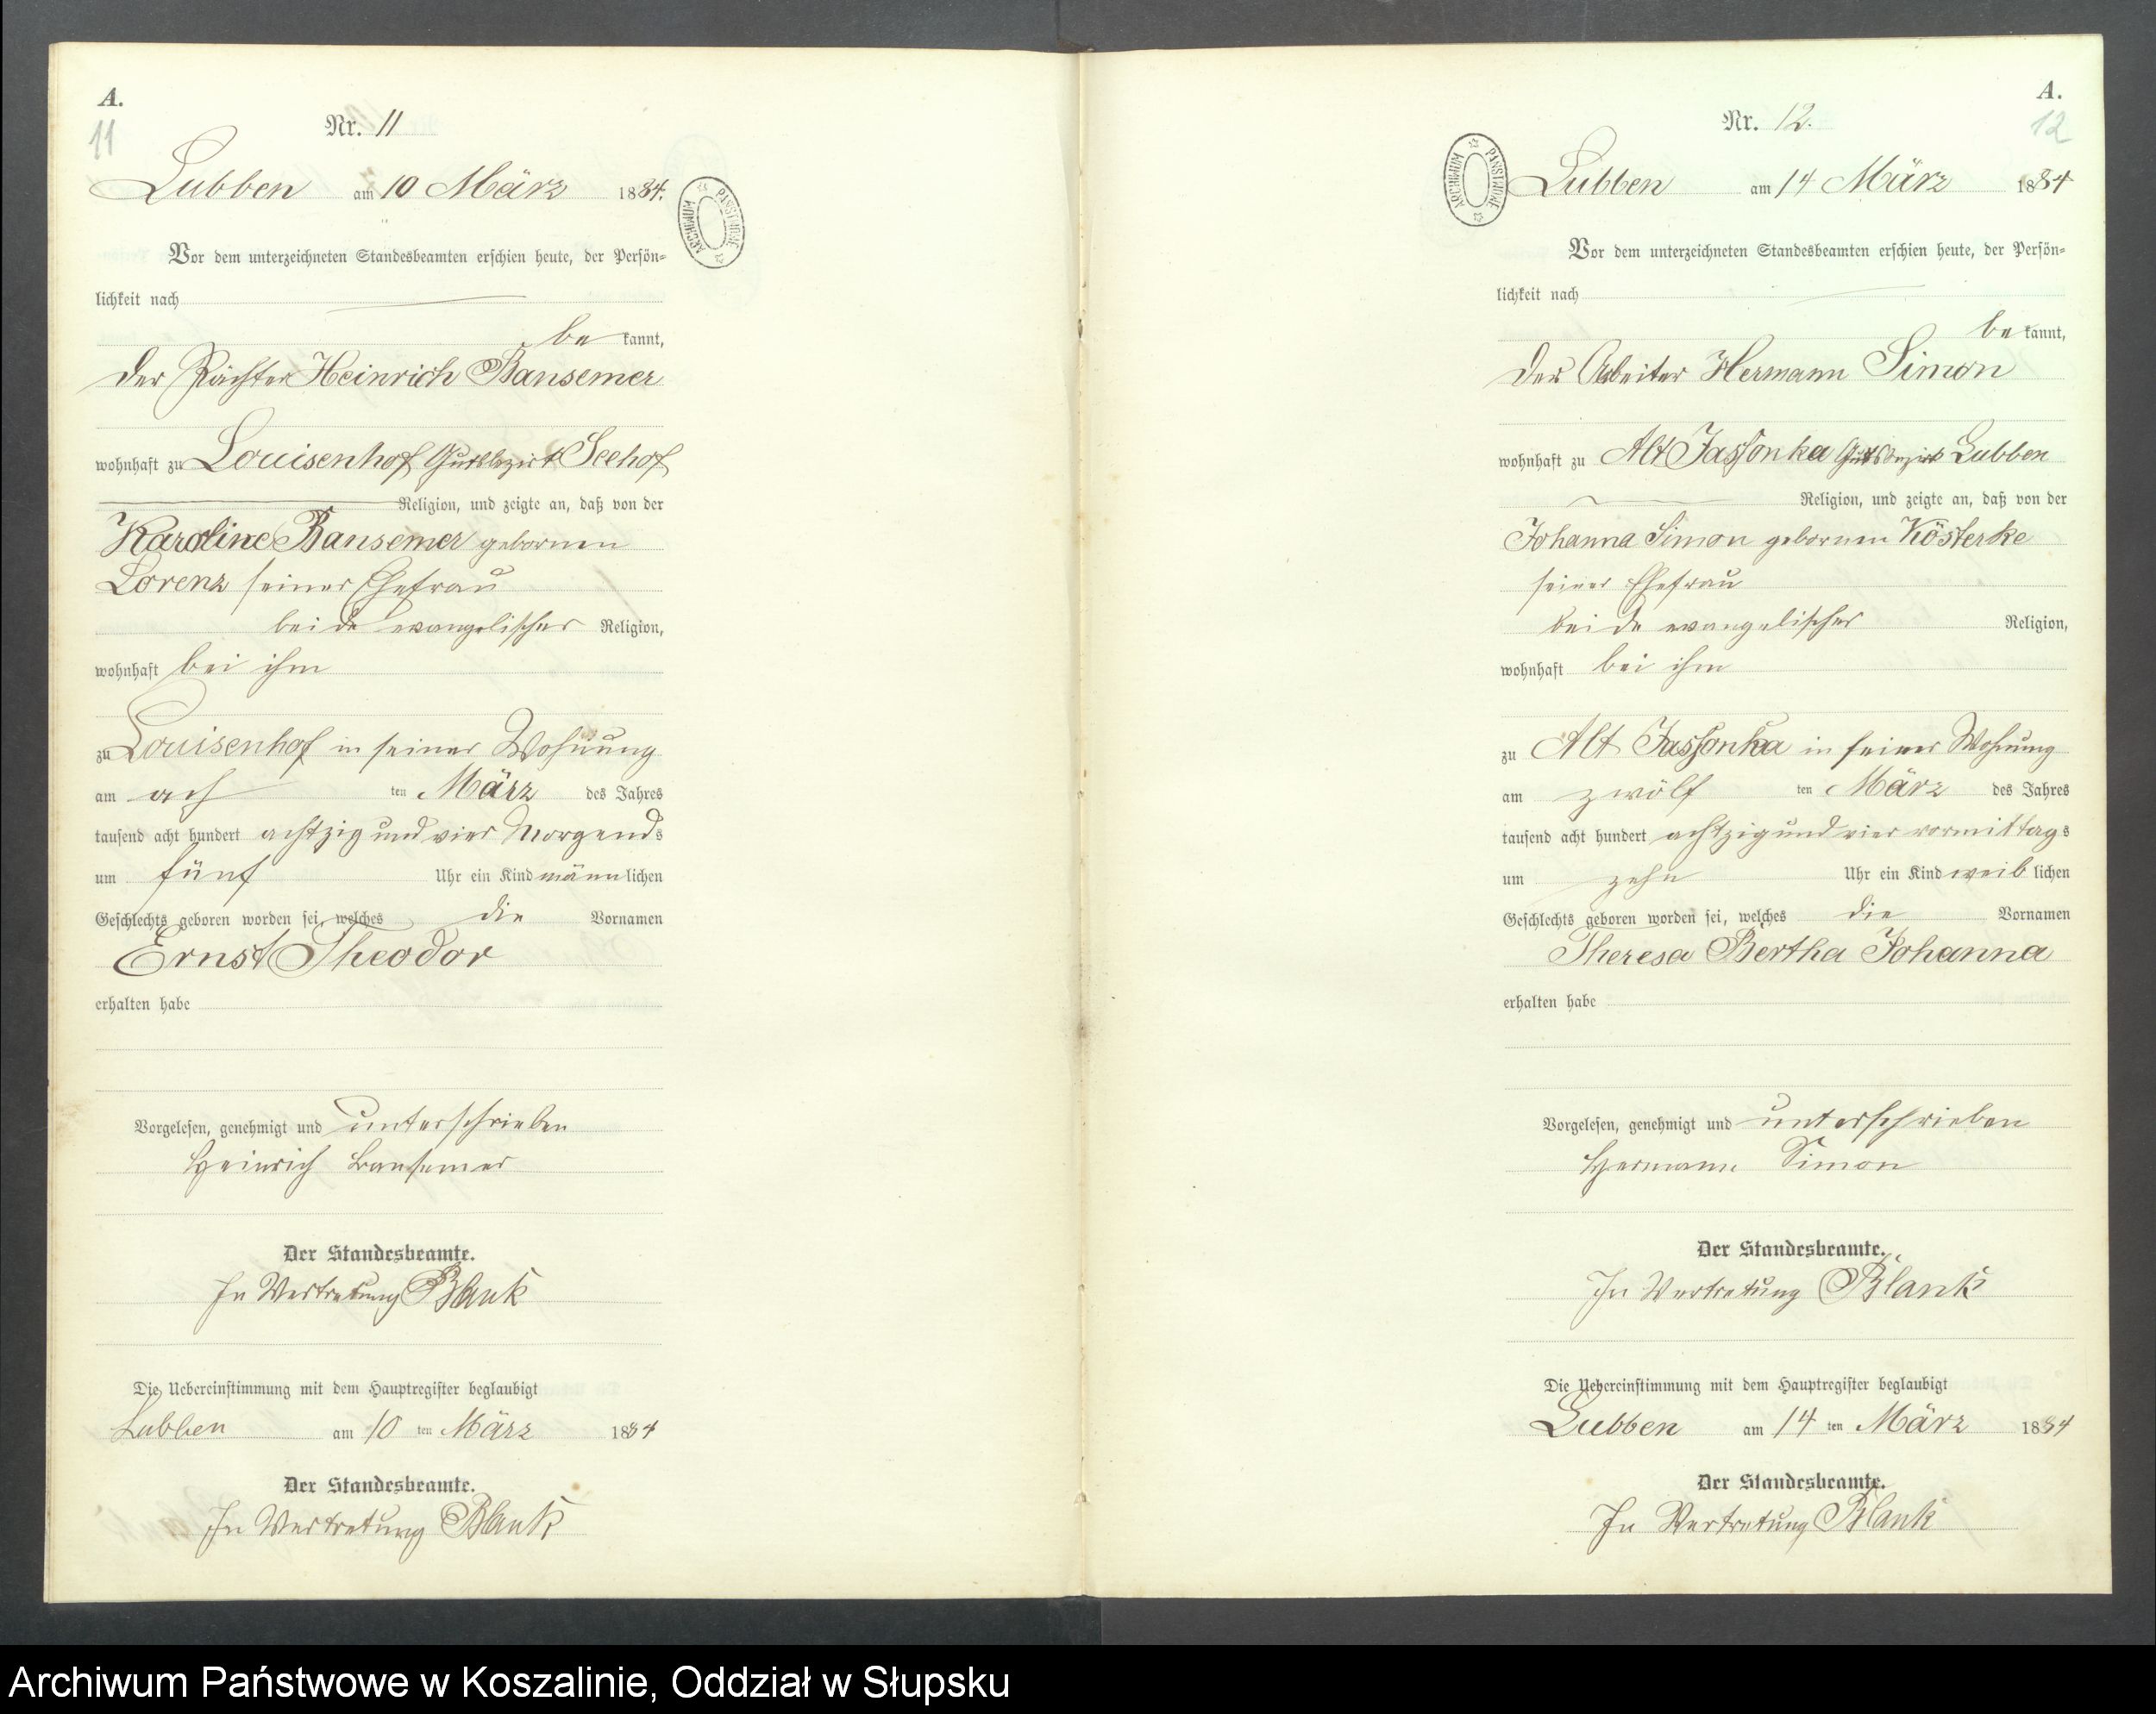 A.
11
Nr. 11
Lubben am 10 März 1884.
ARCHIWUM PAŃSTWOWE
Vor dem unterzeichneten Standesbeamten erschien heute, der Persön-
lichkeit nach
be kannt,
der Pächter Heinrich Bansemer
wohnhaft zu Louisenhof Gutsbezirk Seehof
Religion, und zeigte an, daß von der
Karoline Bansemer gebornen
Lorenz seiner Ehefrau
beide evangelischer Religion,
wohnhaft bei ihm
zu Louisenhof in seiner Wohnung
am ach ten März des Jahres
tausend acht hundert achtzig und vier Morgends
um fünf Uhr ein Kind männlichen
Geschlechts geboren worden sei, welches die Vornamen
Ernst Theodor
erhalten habe
Vorgelesen, genehmigt und unterschrieben
Heinrich Bansemer
Der Standesbeamte.
In Vertretung Blank
Die Uebereinstimmung mit dem Hauptregister beglaubigt
Lubben am 10 ten März 1884
Der Standesbeamte.
In Vertretung Blank
A.
12
Nr. 12.
ARCHIWUM PAŃSTWOWE
Lubben am 14 März 1884
Vor dem unterzeichneten Standesbeamten erschien heute, der Persön-
lichkeit nach
be kannt,
der Arbeiter Hermann Simon
wohnhaft zu Alt Jassonka Gutsbezirk Lubben
Religion, und zeigte an, daß von der
Johanna Simon gebornen Kösterke
seiner Ehefrau
beide evangelischer Religion,
wohnhaft bei ihm
zu Alt Jassonka in seiner Wohnung
am zwölf ten März des Jahres
tausend acht hundert achtzig und vier vormittags
um zehn Uhr ein Kind weiblichen
Geschlechts geboren worden sei, welches die Vornamen
Theresa Bertha Johanna
erhalten habe
Vorgelesen, genehmigt und unterschrieben
Hermann Simon
Der Standesbeamte.
In Vertretung Blank
Die Uebereinstimmung mit dem Hauptregister beglaubigt
Lubben am 14 ten März 1884
Der Standesbeamte.
In Vertretung Blank
Archiwum Państwowe w Koszalinie, Oddział w Słupsku